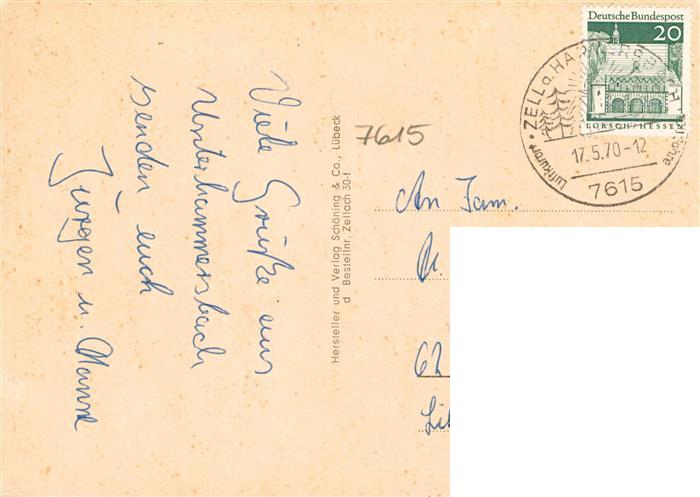 Viele Grüße aus
Unterhammersbach
senden euch
Jürgen u. Hanne
Hersteller und Verlag Schöning & Co., Lübeck
d Bestellnr. Zellach 30-f
7615
Deutsche Bundespost
20
LORSCH/HESSEN
Luftkurort • ZELL a. HARMERSBACH
17.5.70-12
7615
An Fam.